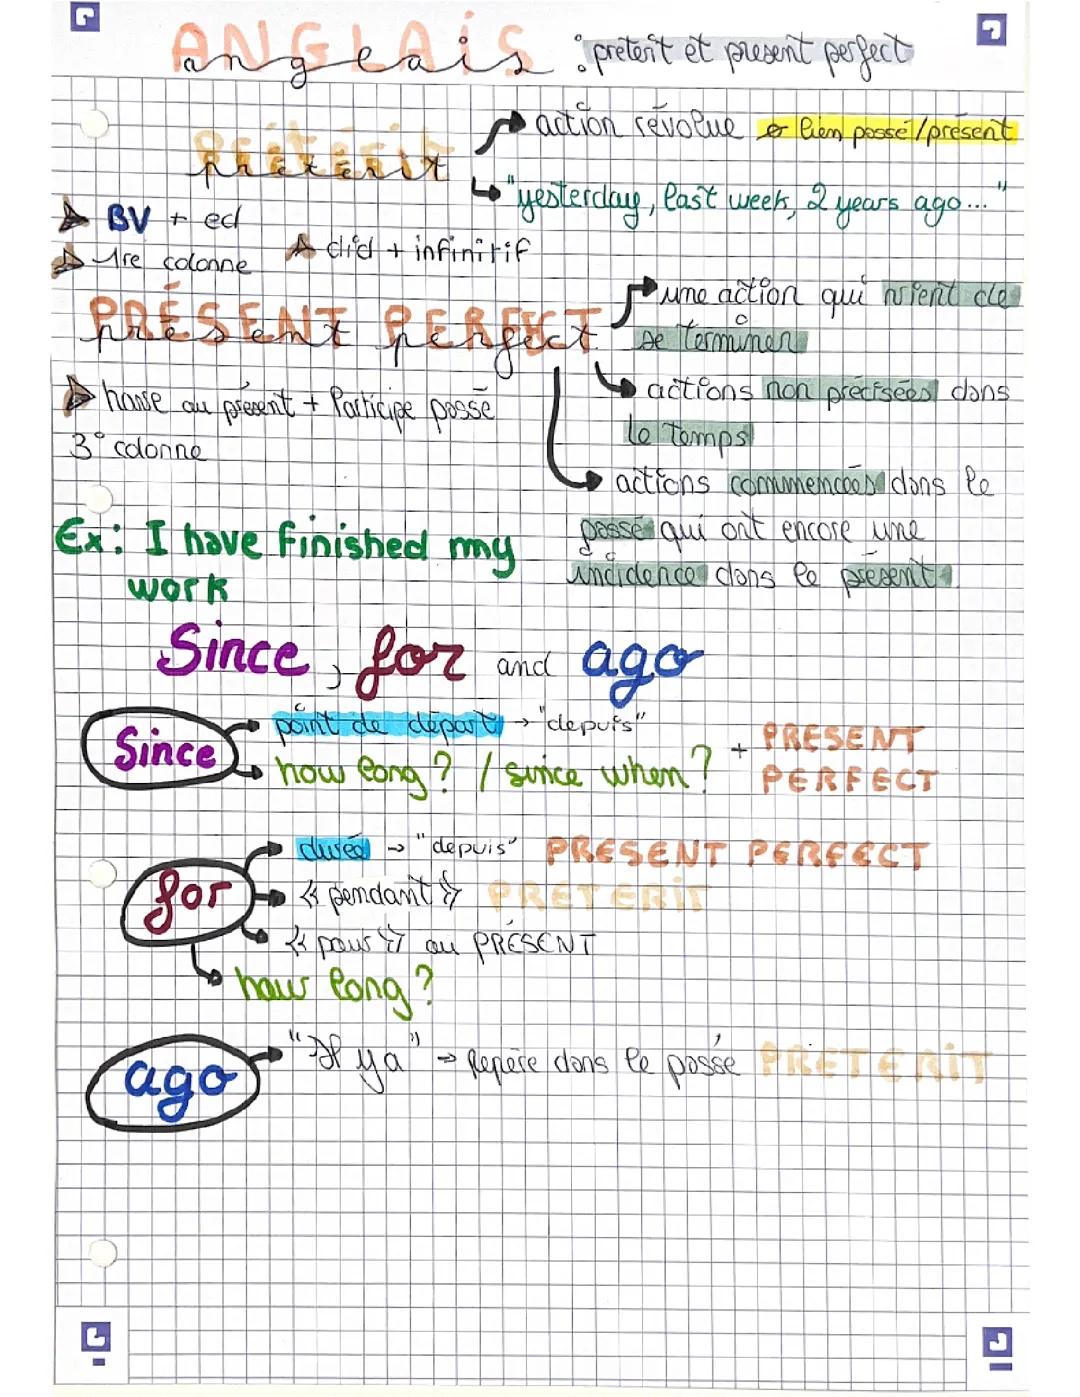 ANGLAIS
anglais : preterit et present perfect
PRÉTÉRIT
prétérit
action révolue ø lien passé/présent
"yesterday, last week, 2 years ago..."
BV + ed
1re colonne
did + infinitif
PRÉSENT PERFECT
présent perfect
une action qui vient de
se terminer
actions non précisées dans
le temps
have au présent + Participe passé
3° colonne
actions commencées dans le
passé qui ont encore une
incidence dans le présent.
Ex: I have finished my
work
Since, for and ago
Since
point de départ → "depuis"
how long? / since when?
+ PRESENT
PERFECT
for
durée → "depuis" PRESENT PERFECT
« pendant » PRETERIT
« pour » au PRÉSENT
how long?
ago
"Il y a" → Repère dans le passé PRETERIT